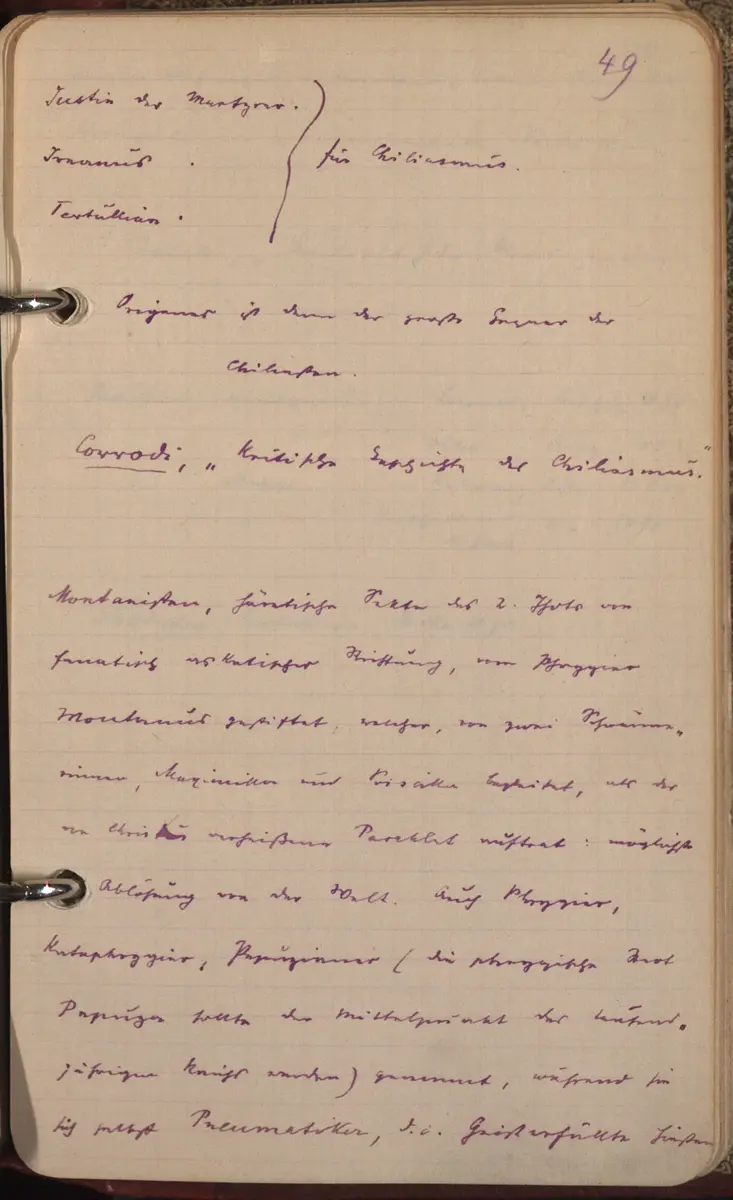 49
Justin der Märtyrer.
Irenaeus .
Tertullian .
für Chiliasmus.
Origenes ist dann der große Gegner der
Chiliasten.
Corrodi, „Kritische Geschichte des Chiliasmus."
Montanisten, häretische Sekte des 2. Jhdts von
fanatisch asketischer Richtung, vom Phrygier
Montanus gestiftet, welcher, von zwei Schwärme„
rinnen, Maximilla und Priscilla begleitet, als der
von Christus verheißene Paraklet auftrat : möglichste
Ablösung von der Welt. Auch Phrygier,
Kataphrygier, Pepuzianer (die phrygische Stadt
Pepuza sollte der Mittelpunkt des tausend„
jährigen Reichs werden) genannt, während sie
sich selbst Pneumatiker, d.i. Geisterfüllte hießen